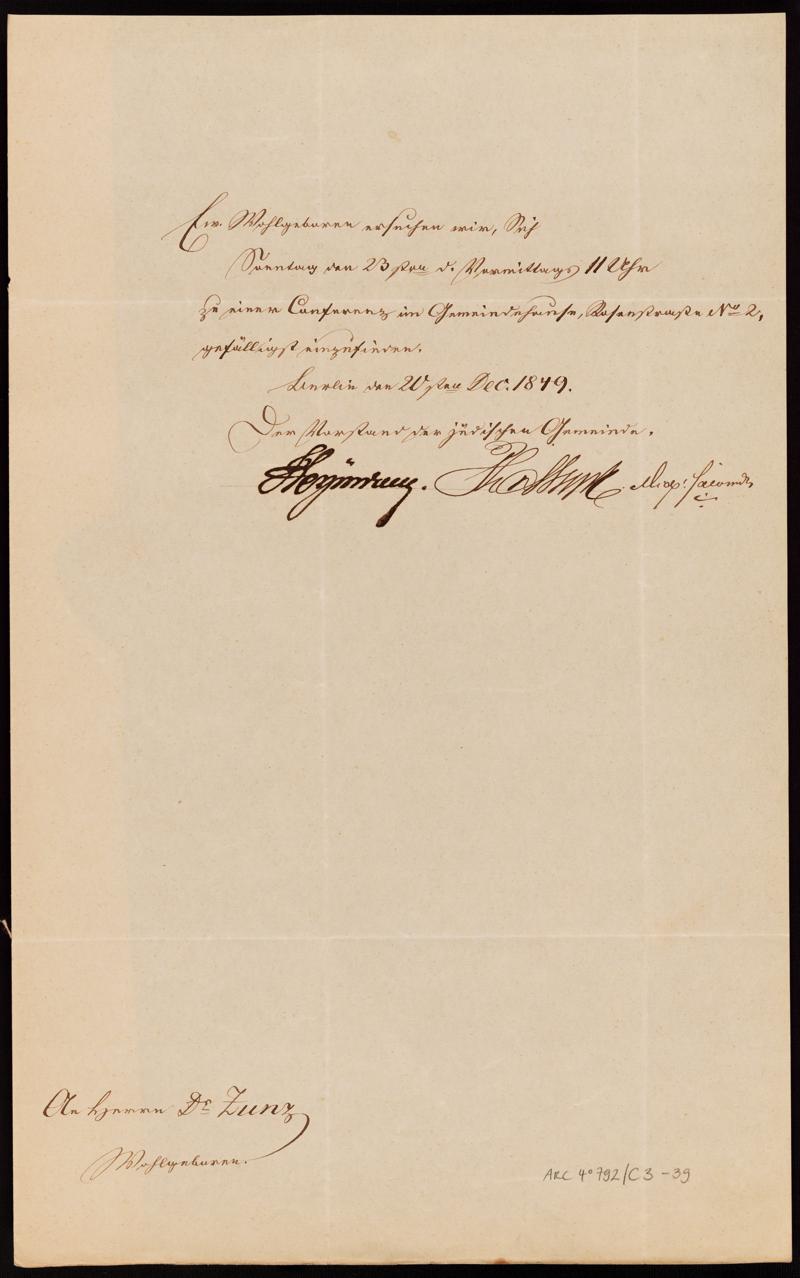 Ew. Wohlgeboren ersuchen wir, Sich
Sonntag den 23sten d. Vormittags 11 Uhr
zu einer Conferenz im Gemeindehause, Rosenstraße No 2,
gefälligst einzufinden.
Berlin den 20sten Dec. 1849.
Der Vorstand der jüdischen Gemeinde.
An Herrn Dr Zunz
Wohlgeboren.
ARC 4° 792/C3-39